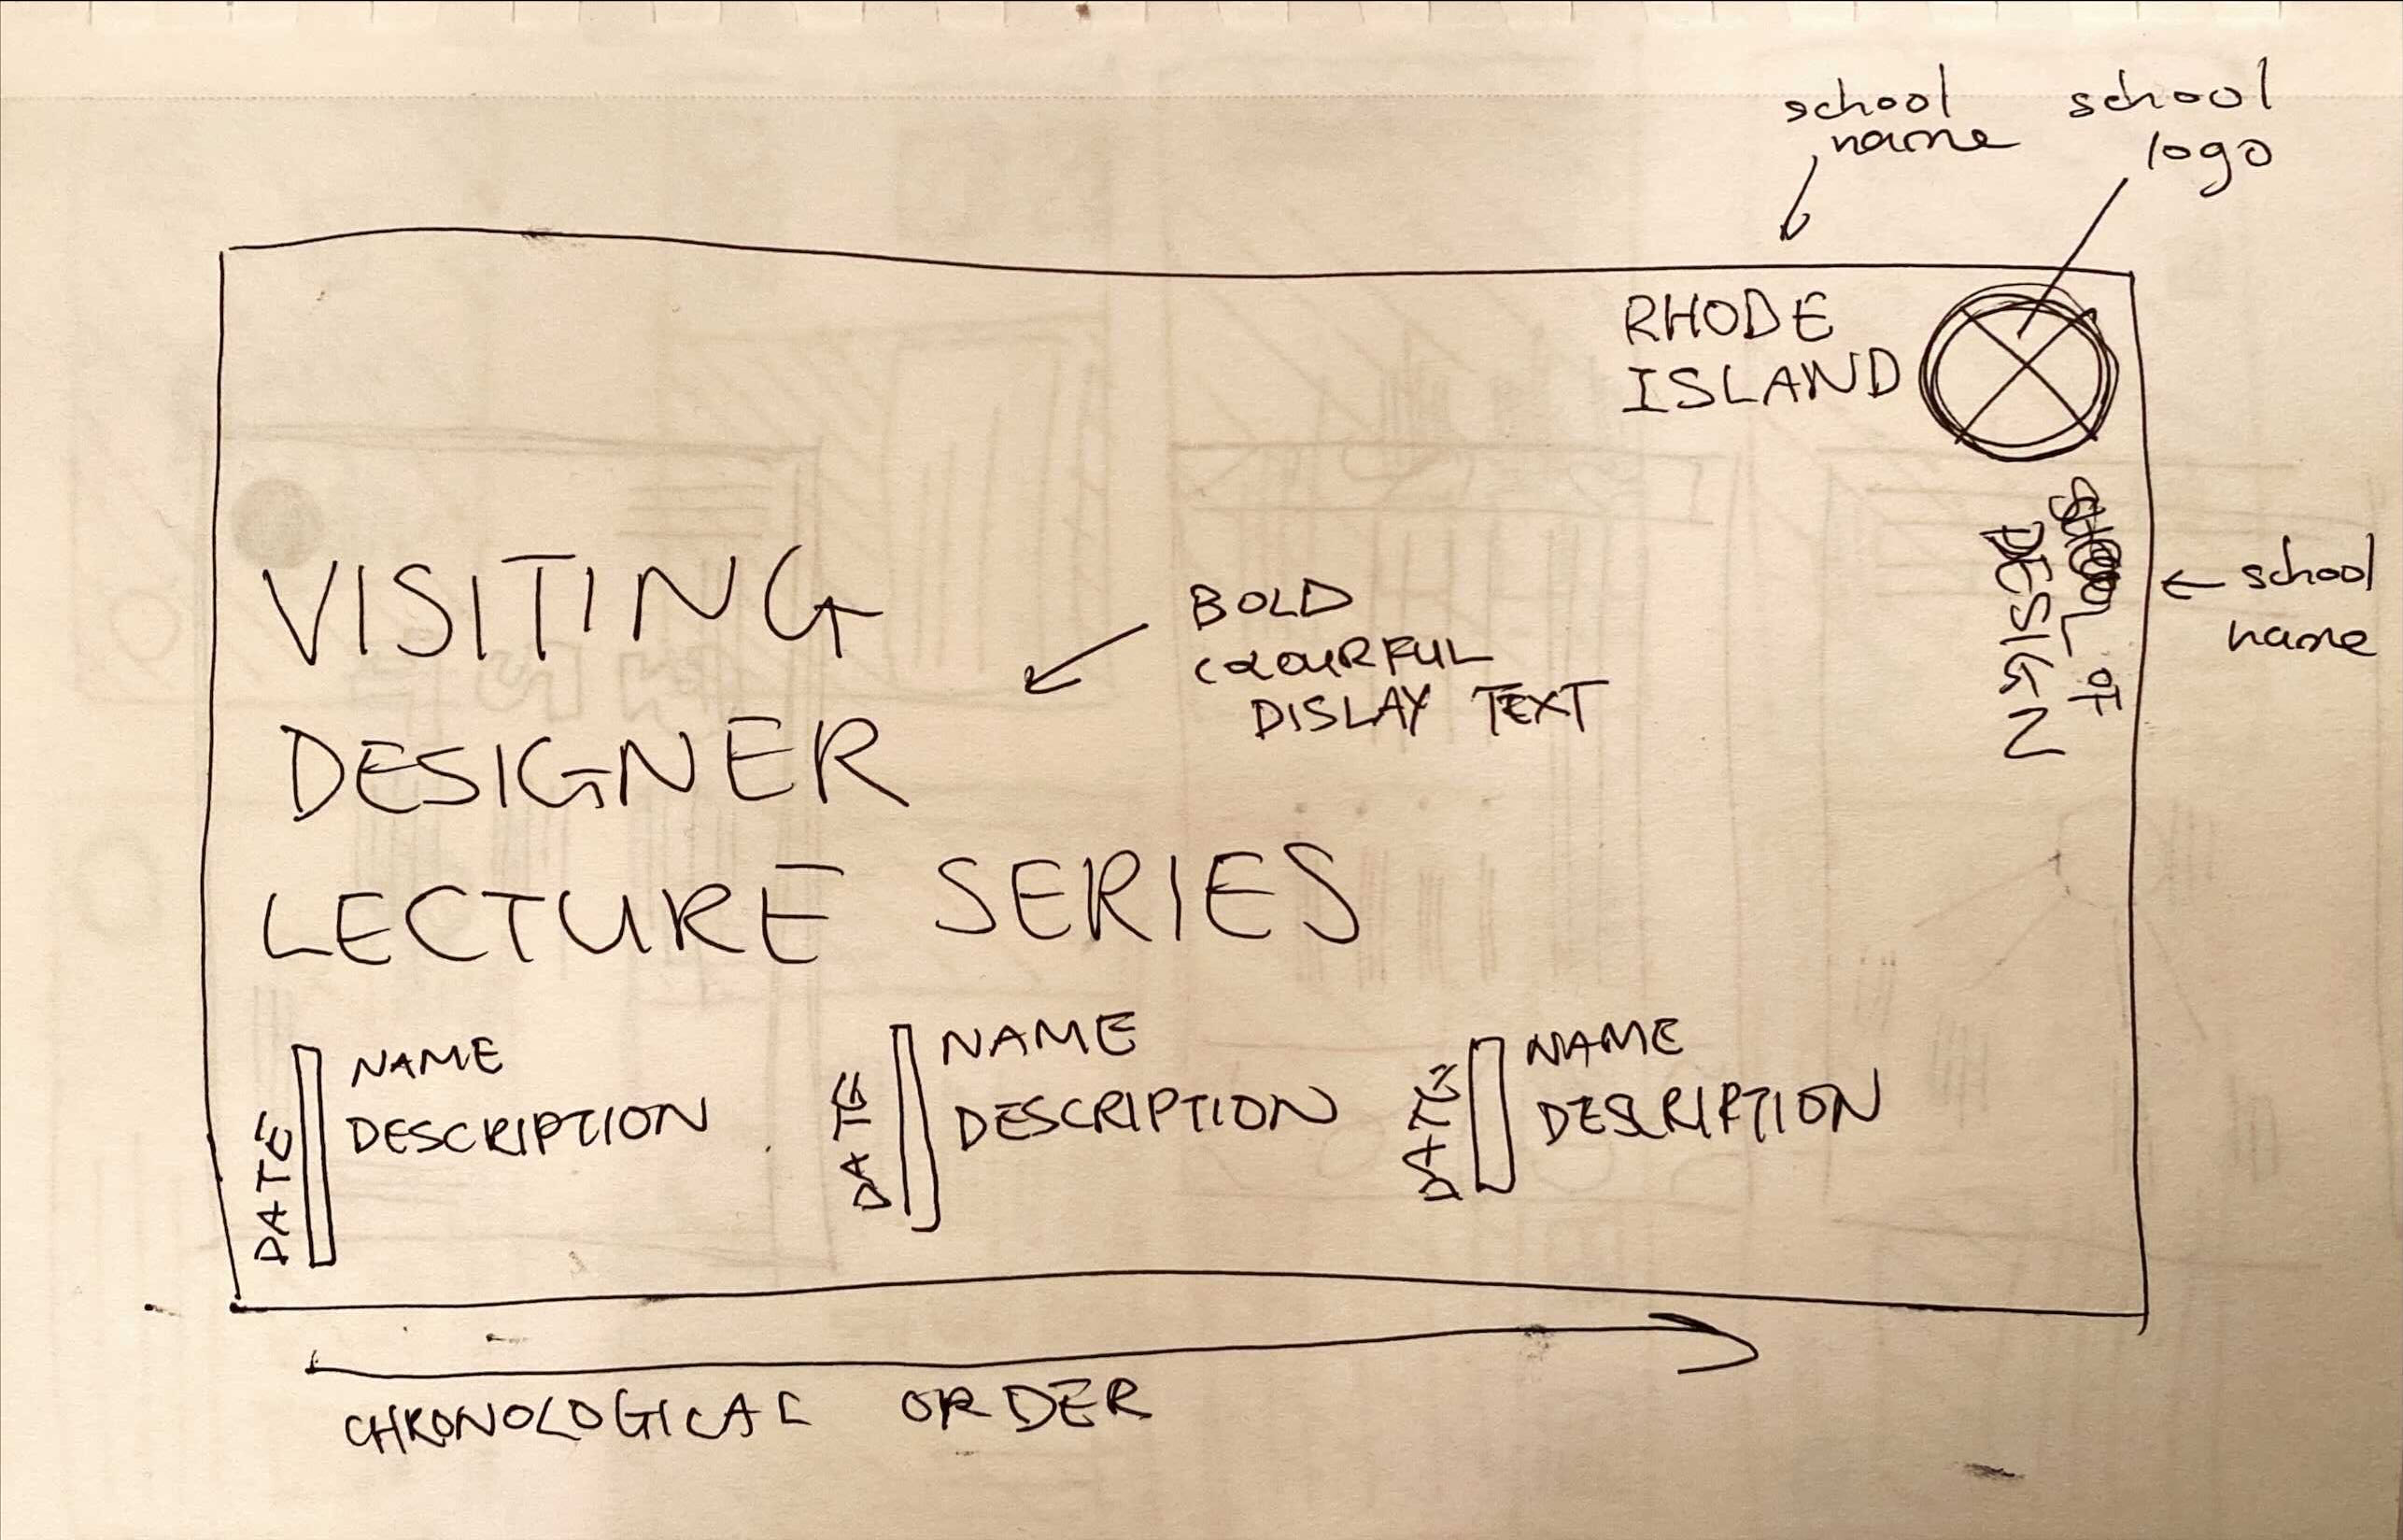 school
name
school
logo
RHODE
ISLAND
SCHOOL OF
DESIGN
school
name
VISITING
DESIGNER
LECTURE SERIES
BOLD
COLOURFUL
DISLAY TEXT
DATE
NAME
DESCRIPTION
DATE
NAME
DESCRIPTION
DATE
NAME
DESCRIPTION
CHRONOLOGICAL ORDER